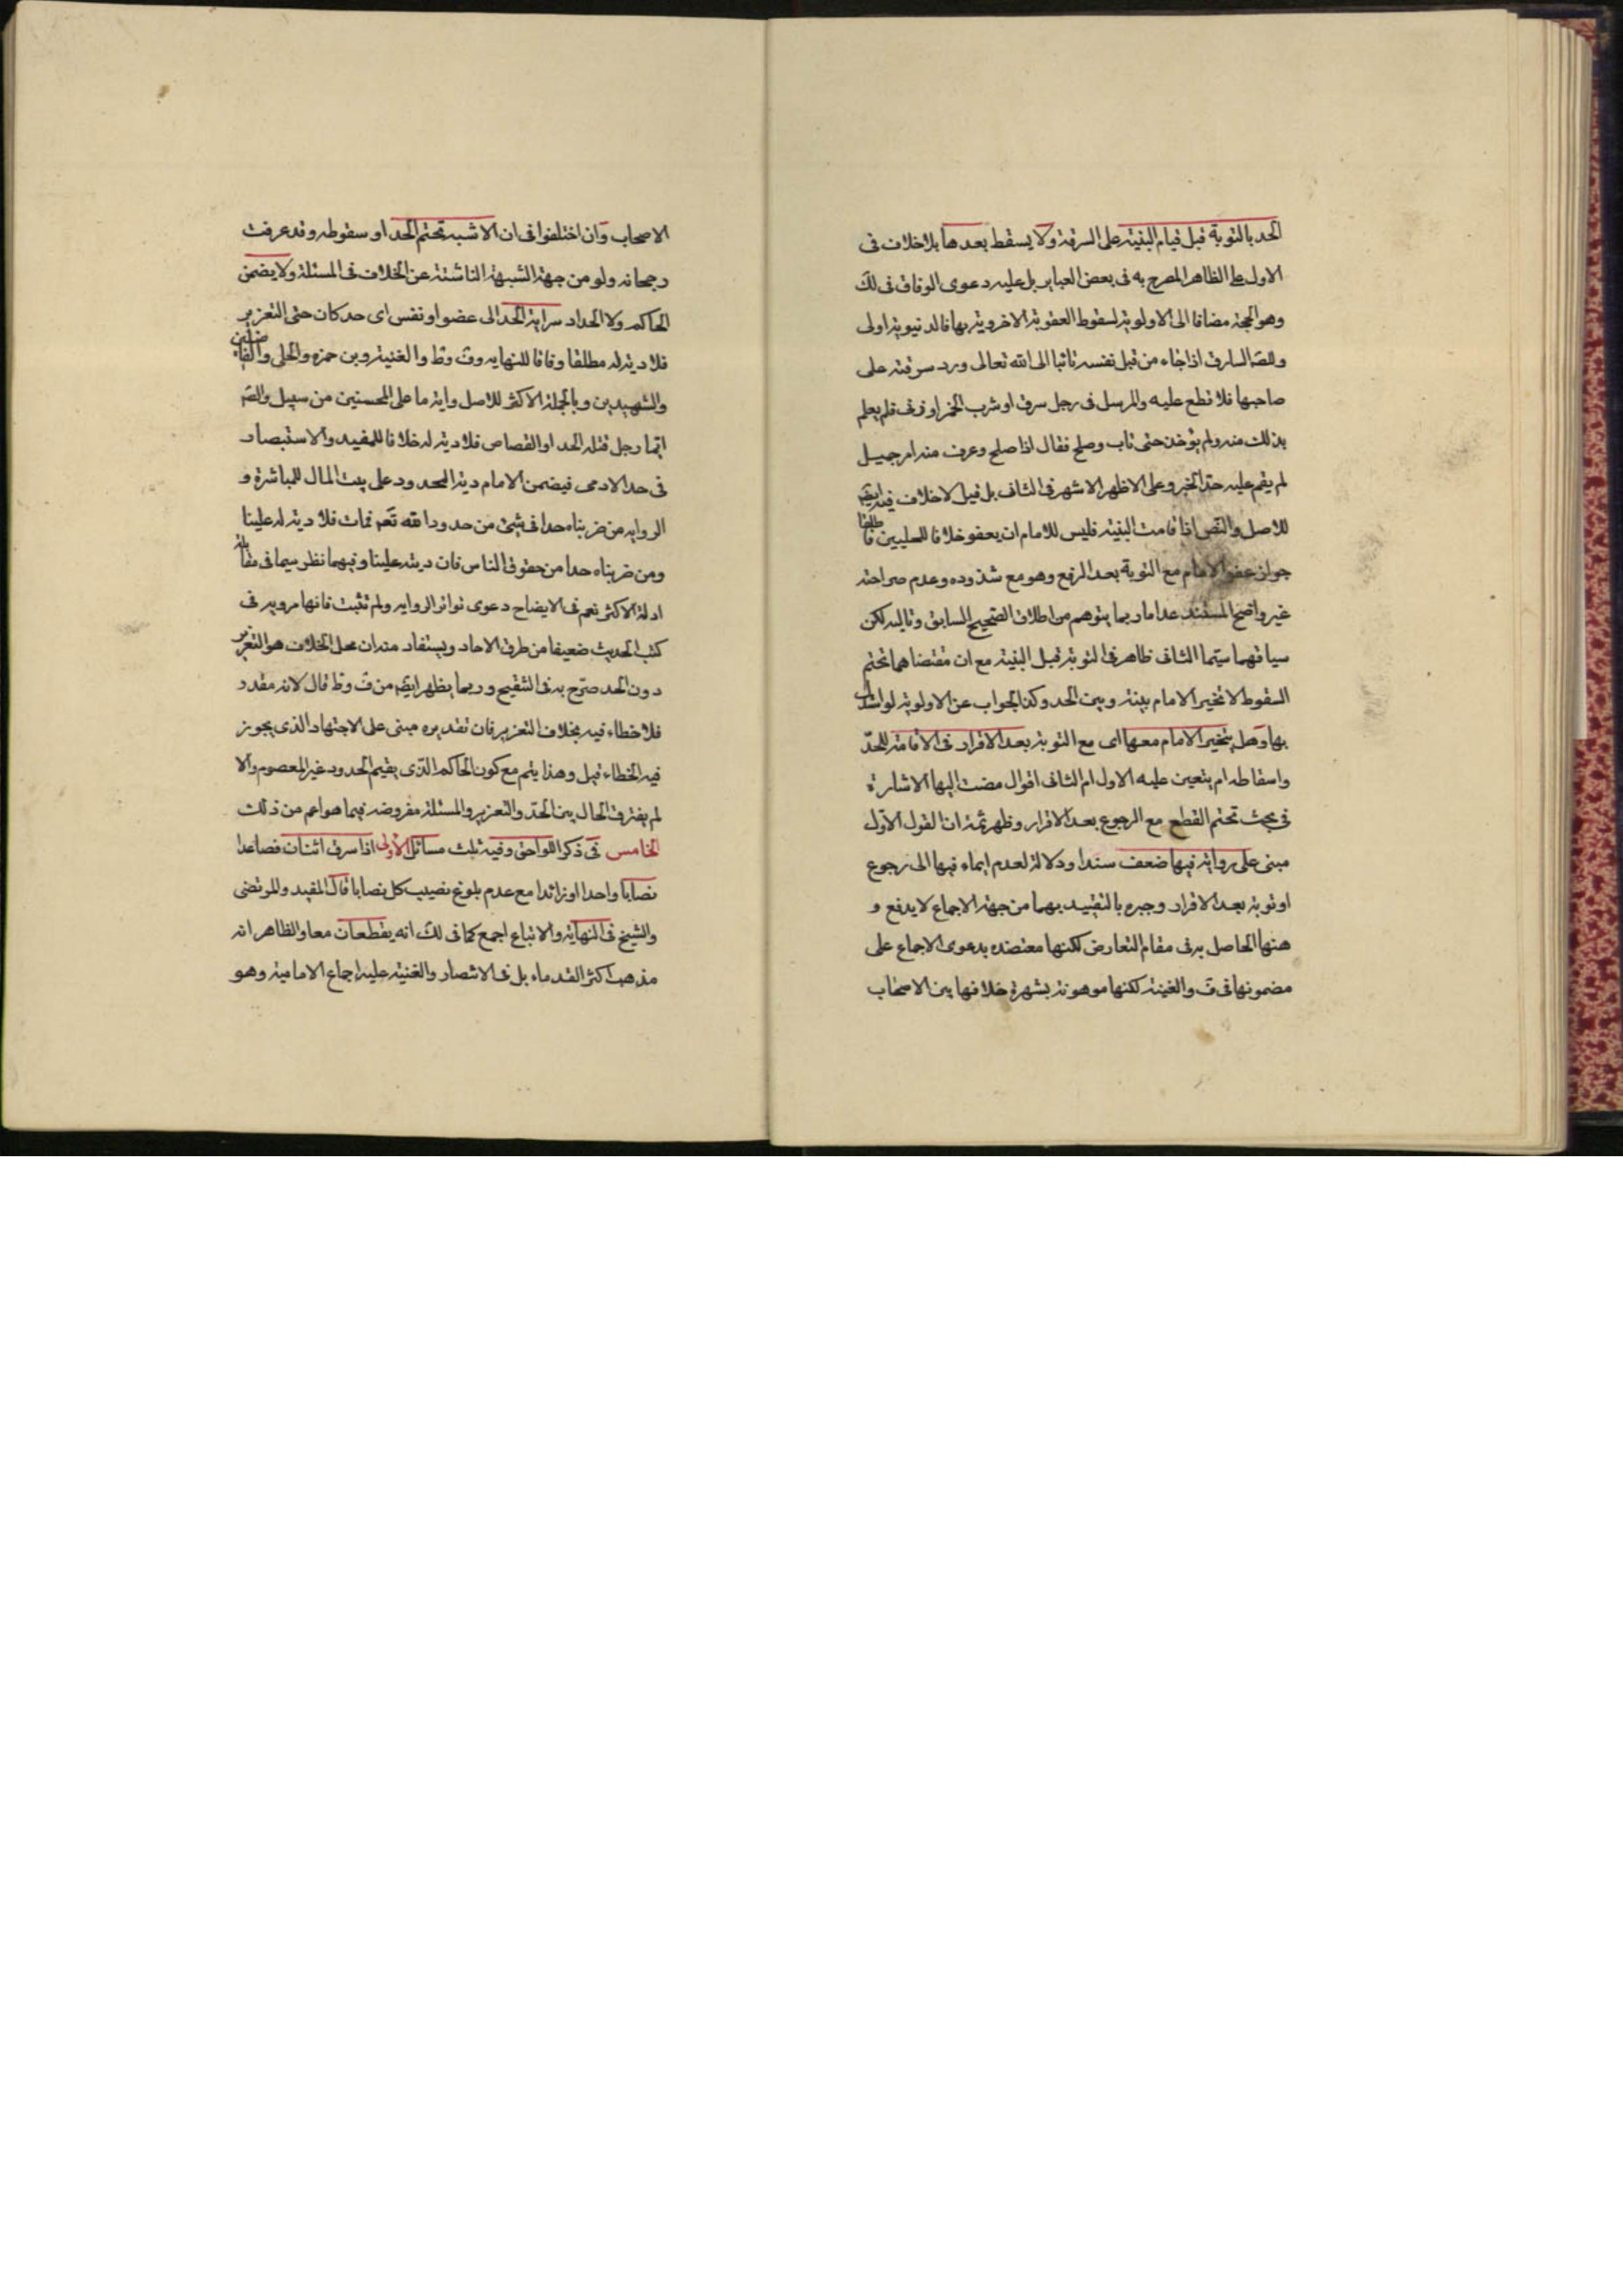 الحد بالتوبة قبل قيام البينة على السرقة ولا يسقط بعدها بلا خلاف فى
الاول على الظاهر المصرح به فى بعض العباير بل عليه دعوى الوفاق فى لك
وهو الحجة مضافا الى الاولوية لسقوط العقوبة الاخروية بها فالدنيوية اولى
وللصه السارق اذا جاء من قبل نفسه تائبا الى الله تعالى ورد سرقته على
صاحبها فلا قطع عليه والمرسل فى رجل سرق او شرب الخمر او زنى فلم يعلم
بذلك منه ولم يؤخذ حتى تاب وصلح فقال اذا صلح وعرف منه امر جميل
لم يقم عليه حد الخبر وعلى الاظهر الاشهر فى الثانى بل قيل لا خلاف فيه ايضه
للاصل والنص اذا قامت البينة فليس للامام ان يعفو خلافا للحلبيين فاطلقا
جواز عفو الامام مع التوبة بعد الرفع وهو مع شذوذه وعدم صراحته
غير واضح المستند عدا ما ربما يتوهم من اطلاق الصحيح السابق وتاليه لكن
سياقهما سيما الثانى ظاهر فى التوبة قبل البينة مع ان مقتضاهما تحتم
السقوط لا تخير الامام بينه وبين الحد وكذا الجواب عن الاولوية لو استدل
بها وهل يتخير الامام معها اى مع التوبة بعد الاقرار فى الاقامة للحد
واسقاطه ام يتعين عليه الاول ام الثانى اقوال مضت اليها الاشارة
فى بحث تحتم القطع مع الرجوع بعد الاقرار وظهر ثمة ان القول الاول
مبنى على رواية فيها ضعف سندا ودلالة لعدم ايماء فيها الى رجوع
او توبة بعد الاقرار وجبره بالتقييد بهما من جهة الاجماع لا يدفع و
هنها الحاصل به فى مقام التعارض لكنها معتضده بدعوى الاجماع على
مضمونها فى ف والغنية لكنها موهونة بشهرة خلافها بين الاصحاب
الاصحاب وان اختلفوا فى ان الاشبه تحتم الحد او سقوطه وقد عرفت
رجحانه ولو من جهة الشبهة الناشئة عن الخلاف فى المسئلة ولا يضمن
الحاكم ولا الحداد سراية الحد الى عضو او نفس اى حد كان حتى التعزير
فلا دية له مطلقا وفاقا للنهايه وف وط والغنية وبن حمزه والحلى والفاضلين
والشهيدين وبالجملة الاكثر للاصل واية ما على المحسنين من سبيل والصه
ايما رجل قتله الحد او القصاص فلا دية له خلافا للمفيد والاستبصار
فى حد الادمى فيضمن الامام دية المحدود على بيت المال للمباشرة و
الروايه من ضربناه حدا فى شئ من حدود الله تعم فمات فلا دية له علينا
ومن ضربناه حدا من حقوق الناس فان ديته علينا وفيهما نظر سيما فى مقابلة
ادلة الاكثر نعم فى الايضاح دعوى تواتر الروايه ولم تثبت فانها مرويه فى
كتب الحديث ضعيفا من طرق الاحاد ويستفاد منه ان محل الخلاف هو التعزير
دون الحد صرح به فى التنقيح وربما يظهر ايضه من ف وط قال لانه مقدر
فلا خطاء فيه بخلاف التعزير فان تقديره مبنى على الاجتهاد الذى يجوز
فيه الخطاء قيل وهذا يتم مع كون الحاكم الذى يقيم الحدود غير المعصوم والا
لم يفترق الحال بين الحد والتعزير والمسئلة مفروضه فيما هو اعم من ذلك
الخامس فى ذكر اللواحق وفيه ثلث مسائل الاولى اذا سرق اثنان فصاعدا
نصابا واحدا او زائدا مع عدم بلوغ نصيب كل نصابا قال المفيد والمرتضى
والشيخ فى النهاية والاتباع اجمع كما فى لك انه يقطعان معا والظاهر انه
مذهب اكثر القدماء بل فى الانتصار والغنية عليه اجماع الامامية وهو